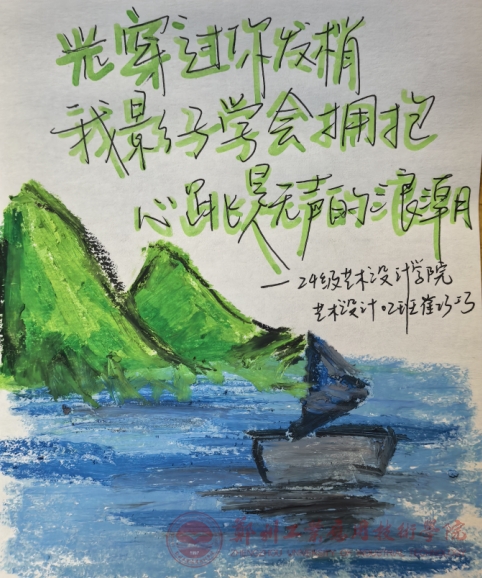 光穿过你发梢
我影子学会拥抱
心跳是无声的浪潮
—24级艺术设计学院
艺术设计02班崔巧巧